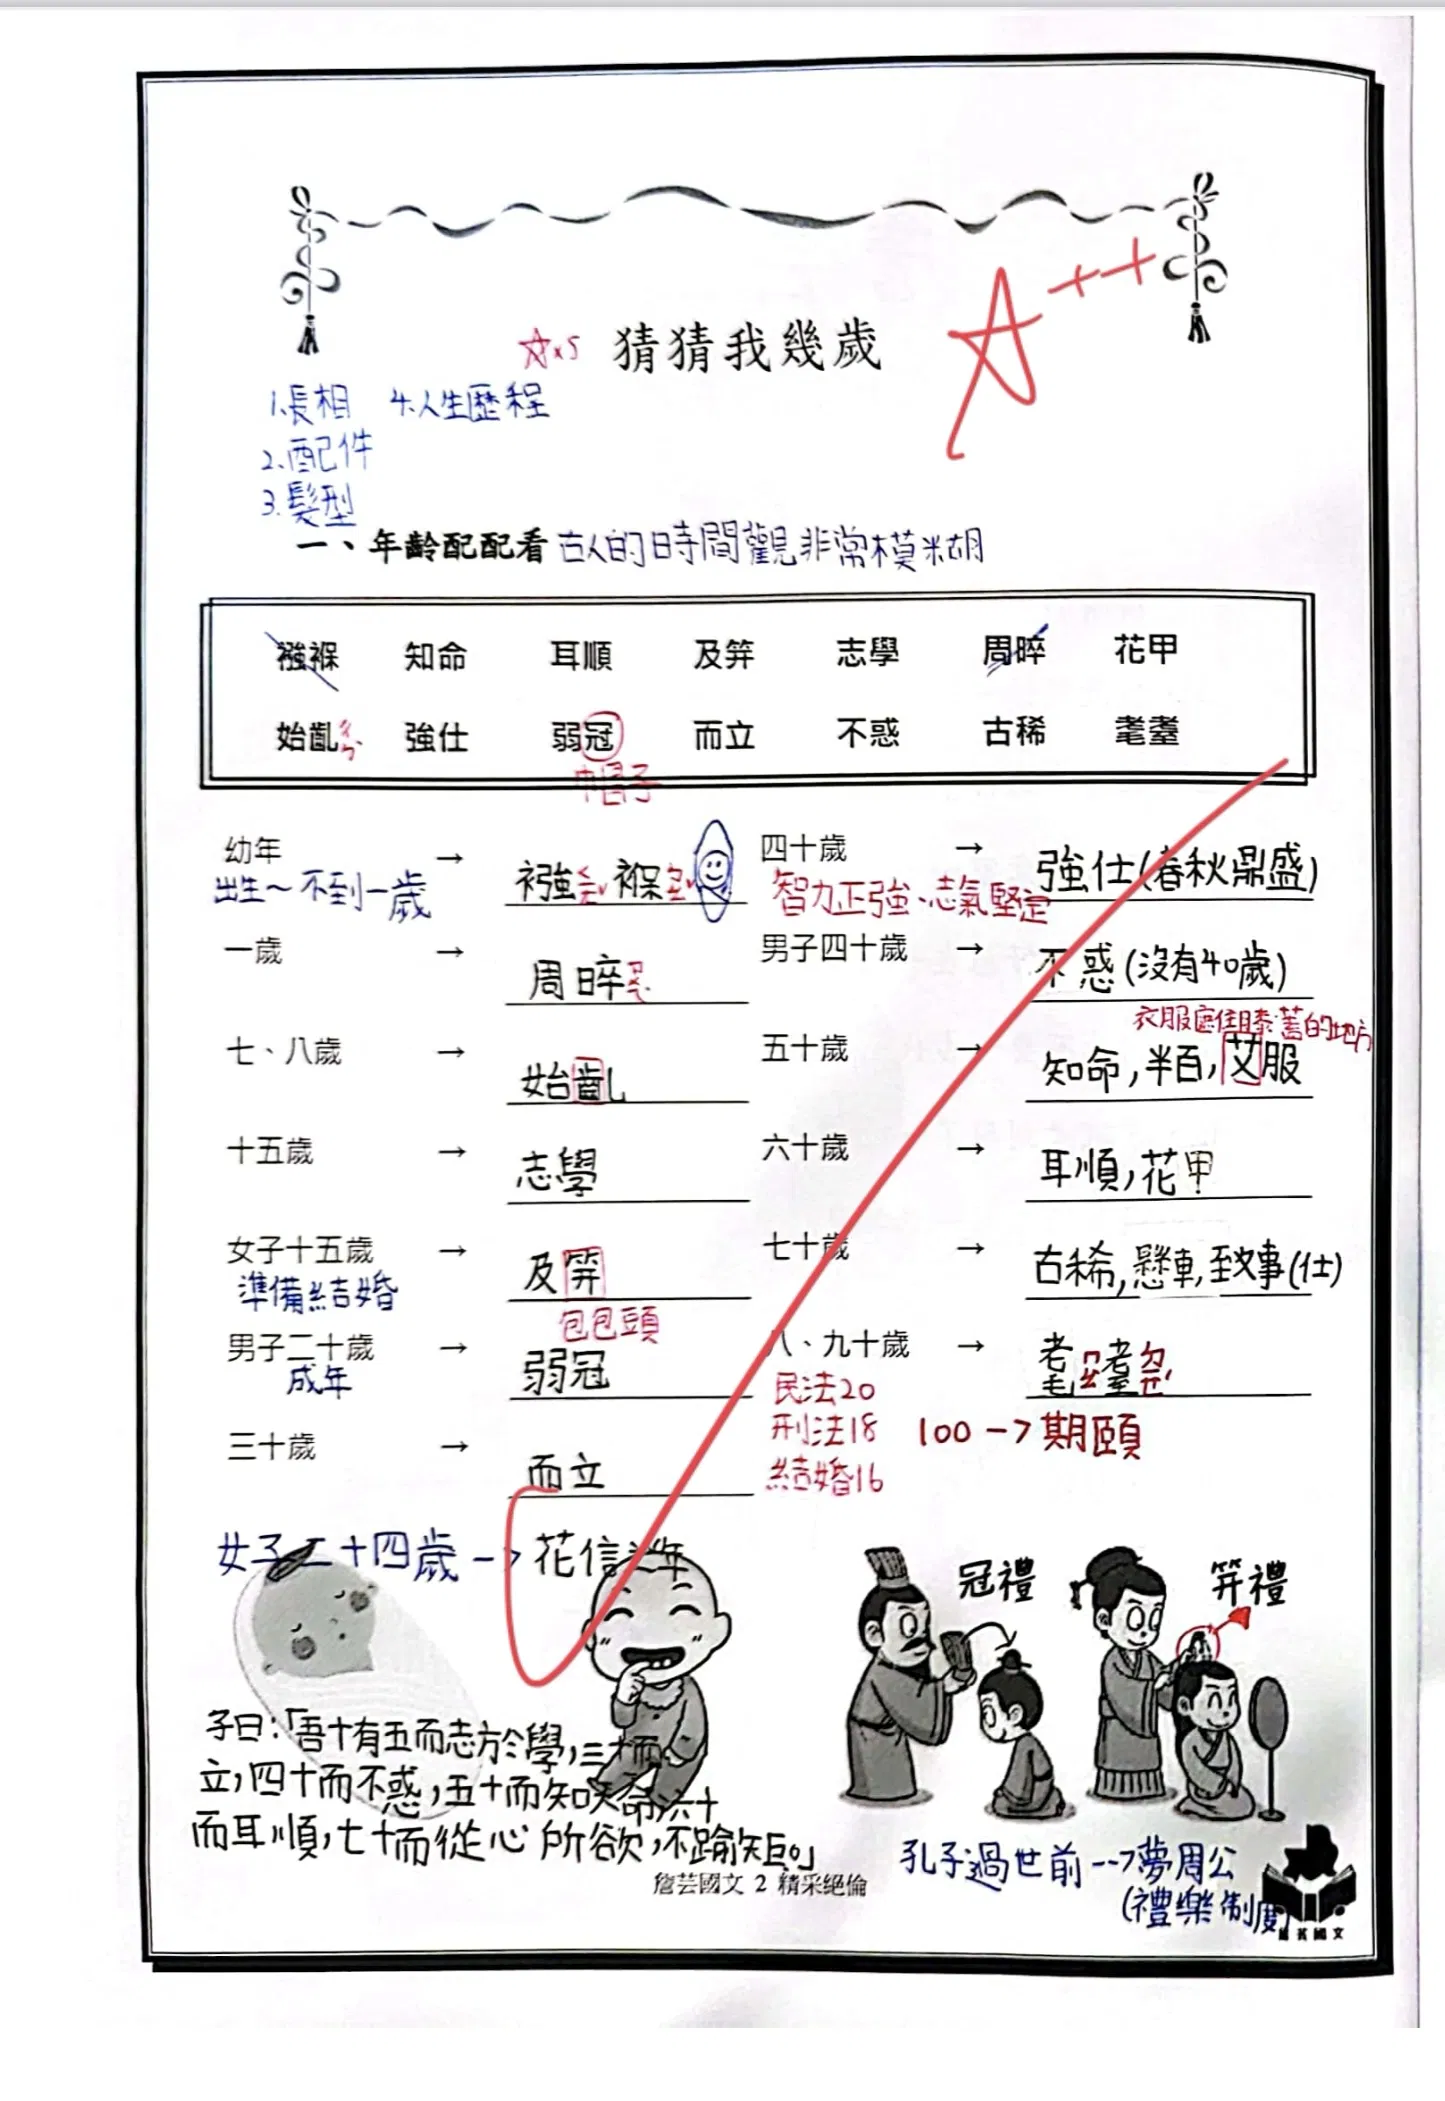 ☆x5 猜猜我幾歲 A++
1.長相 4.人生歷程
2.配件
3.髮型
一、年齡配配看 古人的時間觀非常模糊
襁褓 知命 耳順 及笄 志學 周晬 花甲
始齔ㄔㄣˋ 強仕 弱冠 而立 不惑 古稀 耄耋
帽子
幼年 → 襁ㄑㄧㄤˇ褓ㄅㄠˇ
出生~不到一歲
四十歲 → 強仕(春秋鼎盛)
智力正強、志氣堅定
一歲 → 周晬ㄗㄨㄟˋ
男子四十歲 → 不惑(沒有40歲)
七、八歲 → 始齔
衣服遮住膝蓋的地方
五十歲 → 知命,半百,艾服
十五歲 → 志學
六十歲 → 耳順,花甲
女子十五歲 → 及笄
準備結婚
包包頭
七十歲 → 古稀,懸車,致事(仕)
男子二十歲 → 弱冠
成年
八、九十歲 → 耄ㄇㄠˋ耋ㄉㄧㄝˊ
民法20
刑法18
結婚16
100->期頤
三十歲 → 而立
女子二十四歲-> 花信之年
冠禮
笄禮
子曰:「吾十有五而志於學,三十而
立,四十而不惑,五十而知天命,六十
而耳順,七十而從心所欲,不踰矩。」
孔子過世前-->夢周公
(禮樂制度)
詹芸國文 2 精采絕倫
詹芸國文